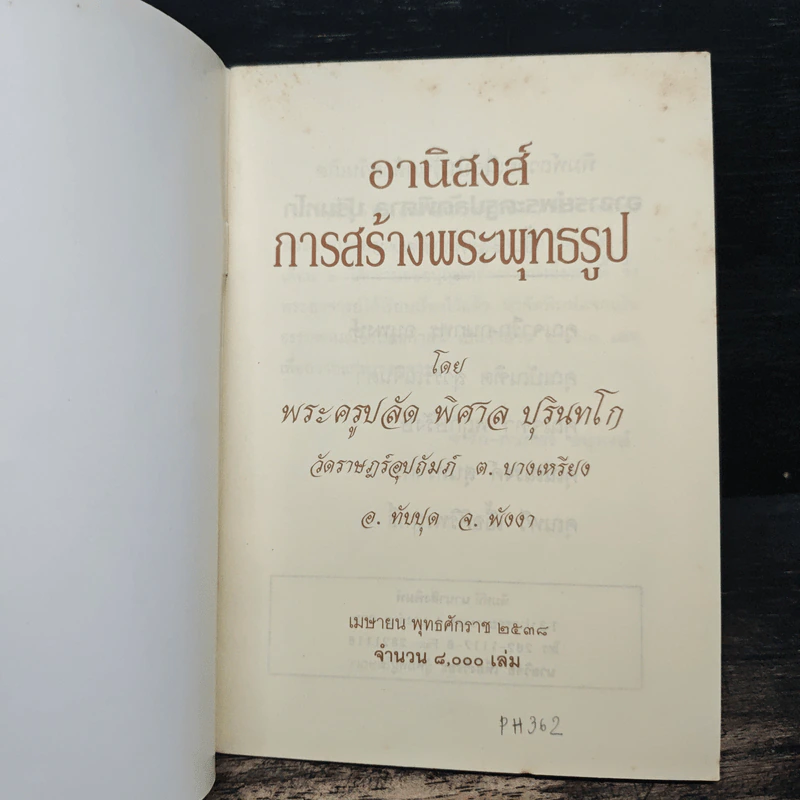 อานิสงส์
การสร้างพระพุทธรูป
โดย
พระครูปลัด พิศาล ปุรินทโก
วัดราษฎร์อุปถัมภ์ ต. บางเหรียง
อ. ทับปุด จ. พังงา
เมษายน พุทธศักราช ๒๕๓๘
จำนวน ๘,๐๐๐ เล่ม
PH362